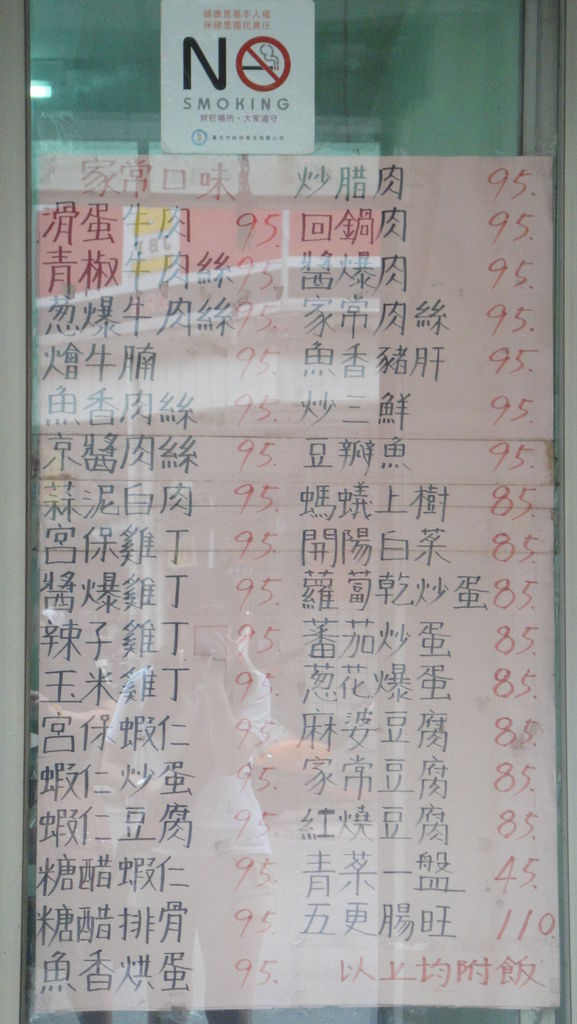 健康是基本人權
保健是國民責任
NO
SMOKING
禁菸場所·大家遵守
家常口味
滑蛋牛肉 95.
青椒牛肉絲 95.
葱爆牛肉絲 95.
燴牛腩 95.
魚香肉絲 95.
京醬肉絲 95.
蒜泥白肉 95.
宮保雞丁 95.
醬爆雞丁 95.
辣子雞丁 95.
玉米雞丁 95.
宮保蝦仁 95.
蝦仁炒蛋 95.
蝦仁豆腐 95.
糖醋蝦仁 95.
糖醋排骨 95.
魚香烘蛋 95.
炒腊肉 95.
回鍋肉 95.
醬爆肉 95.
家常肉絲 95.
魚香豬肝 95.
炒三鮮 95.
豆瓣魚 95.
螞蟻上樹 85.
開陽白菜 85.
蘿蔔乾炒蛋 85.
蕃茄炒蛋 85.
葱花爆蛋 85.
麻婆豆腐 85.
家常豆腐 85.
紅燒豆腐 85.
青菜一盤 45.
五更腸旺 110.
以上均附飯